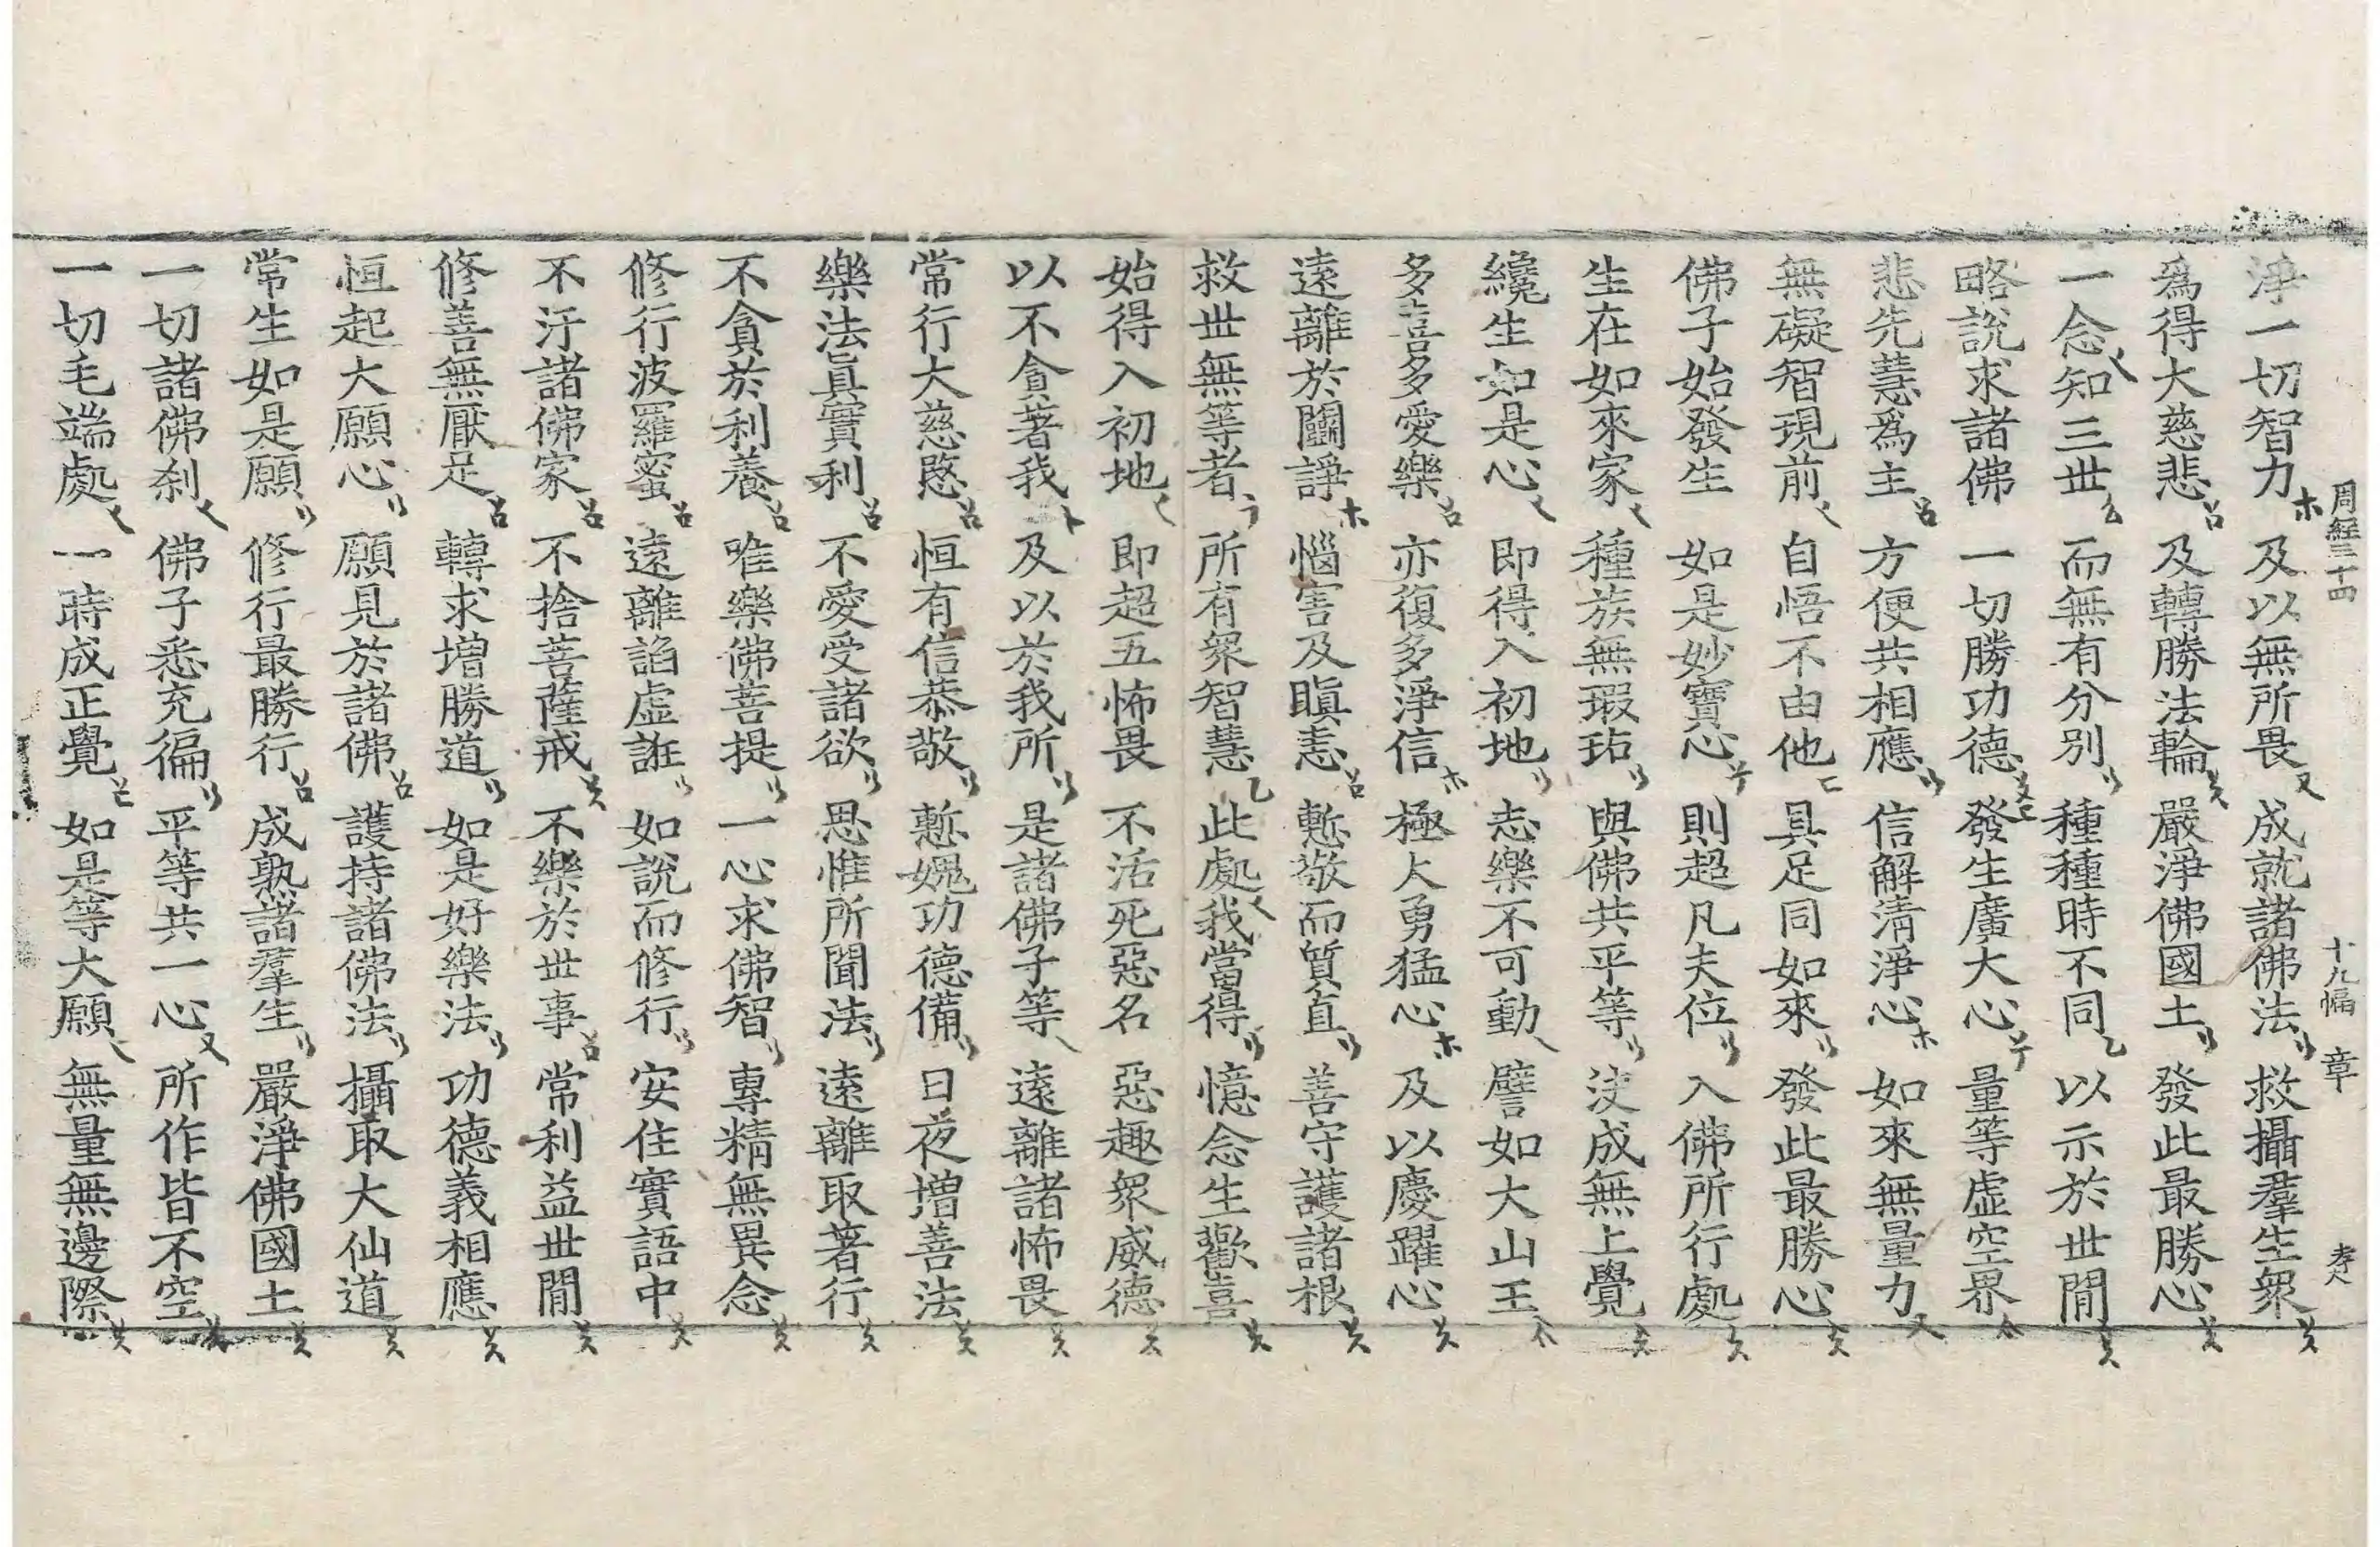 周經三十四 十九幅 章 孝大
淨一切智力 及以無所畏 成就諸佛法 救攝羣生衆
爲得大慈悲 及轉勝法輪 嚴淨佛國土 發此最勝心
一念知三世 而無有分別 種種時不同 以示於世間
略說求諸佛 一切勝功德 發生廣大心 量等虛空界
悲先慧爲主 方便共相應 信解清淨心 如來無量力
無礙智現前 自悟不由他 具足同如來 發此最勝心
佛子始發生 如是妙寶心 則超凡夫位 入佛所行處
生在如來家 種族無瑕玷 與佛共平等 決成無上覺
纔生如是心 即得入初地 志樂不可動 譬如大山王
多喜多愛樂 亦復多淨信 極大勇猛心 及以慶躍心
遠離於鬪諍 惱害及瞋恚 慙敬而質直 善守護諸根
救世無等者 所有衆智慧 此處我當得 憶念生歡喜
始得入初地 即超五怖畏 不活死惡名 惡趣衆威德
以不貪著我 及以於我所 是諸佛子等 遠離諸怖畏
常行大慈愍 恒有信恭敬 慙愧功德備 日夜增善法
樂法眞實利 不愛受諸欲 思惟所聞法 遠離取著行
不貪於利養 唯樂佛菩提 一心求佛智 專精無異念
修行波羅蜜 遠離諂虛誑 如說而修行 安住實語中
不汙諸佛家 不捨菩薩戒 不樂於世事 常利益世間
修善無厭足 轉求增勝道 如是好樂法 功德義相應
恒起大願心 願見於諸佛 護持諸佛法 攝取大仙道
常生如是願 修行最勝行 成熟諸羣生 嚴淨佛國土
一切諸佛刹 佛子悉充徧 平等共一心 所作皆不空
一切毛端處 一時成正覺 如是等大願 無量無邊際